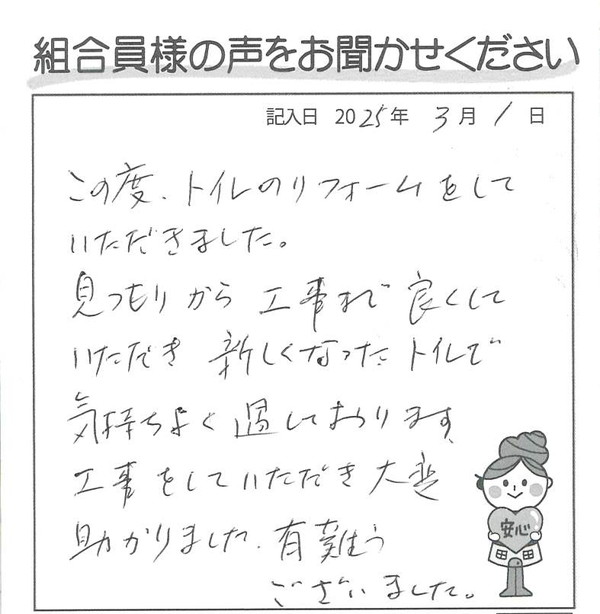 組合員様の声をお聞かせください
記入日 2025年 3月 1日
この度、トイレのリフォームをして
いただきました。
見つもりから 工事まで 良くして
いただき 新しくなったトイレで
気持ちよく過しております。
工事をしていただき大変
助かりました。有難う
ございました。
安心